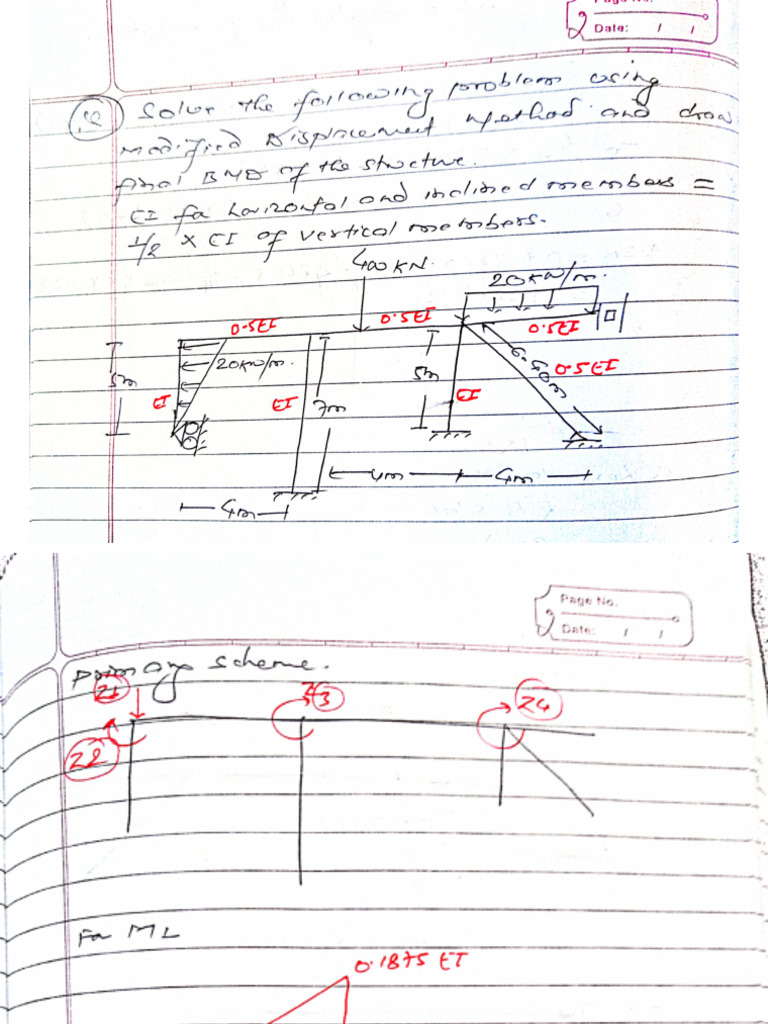 Page No.
2 Date: / /
Q Solve the following problem using
modified Displacement Method and draw
final BMD of the structure.
EI for horizontal and inclined members =
1/2 x EI of vertical members.
400 KN
20 KN/m.
0.5EI 0.5EI 0.5EI
20KN/m. 6.40m 0.5EI
5m EI EI 7m 5m EI
4m 4m
4m
Page No.
2 Date: / /
primary scheme.
Z1 Z3 Z4
Z2
For ML
0.1875 EI